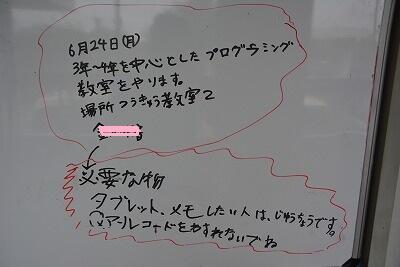 6月24日(月)
3年〜4年を中心としたプログラミング
教室をやります。
場所つうきゅう教室2
必要な物
タブレット、メモしたい人は、じゆうちょうです。
Qアールコードをわすれないでね